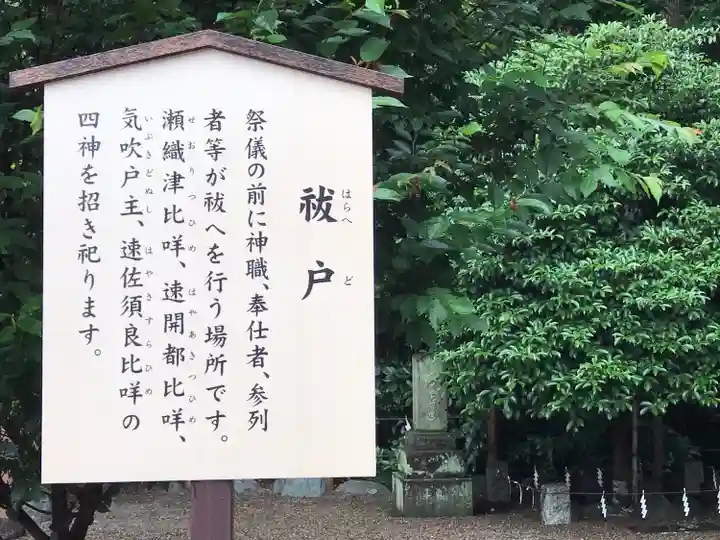 祓戸
はらへど
祭儀の前に神職、奉仕者、参列
者等が祓へを行う場所です。
瀬織津比咩、速開都比咩、
せおりつひめ はやあきつひめ
気吹戸主、速佐須良比咩の
いぶきどぬし はやさすらひめ
四神を招き祀ります。